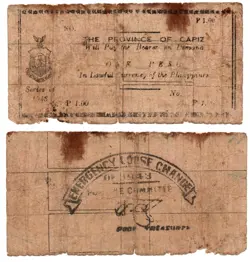 No.
₱ 1.00
THE PROVINCE OF CAPIZ
Will Pay the Bearer on Demand
ONE PESO
In Lawful Currency of the Philippines
Series of
No.
₱ 1.00
₱ 1.
EMERGENCY LOOSE CHANGE
OF 1943
COMMITTEE